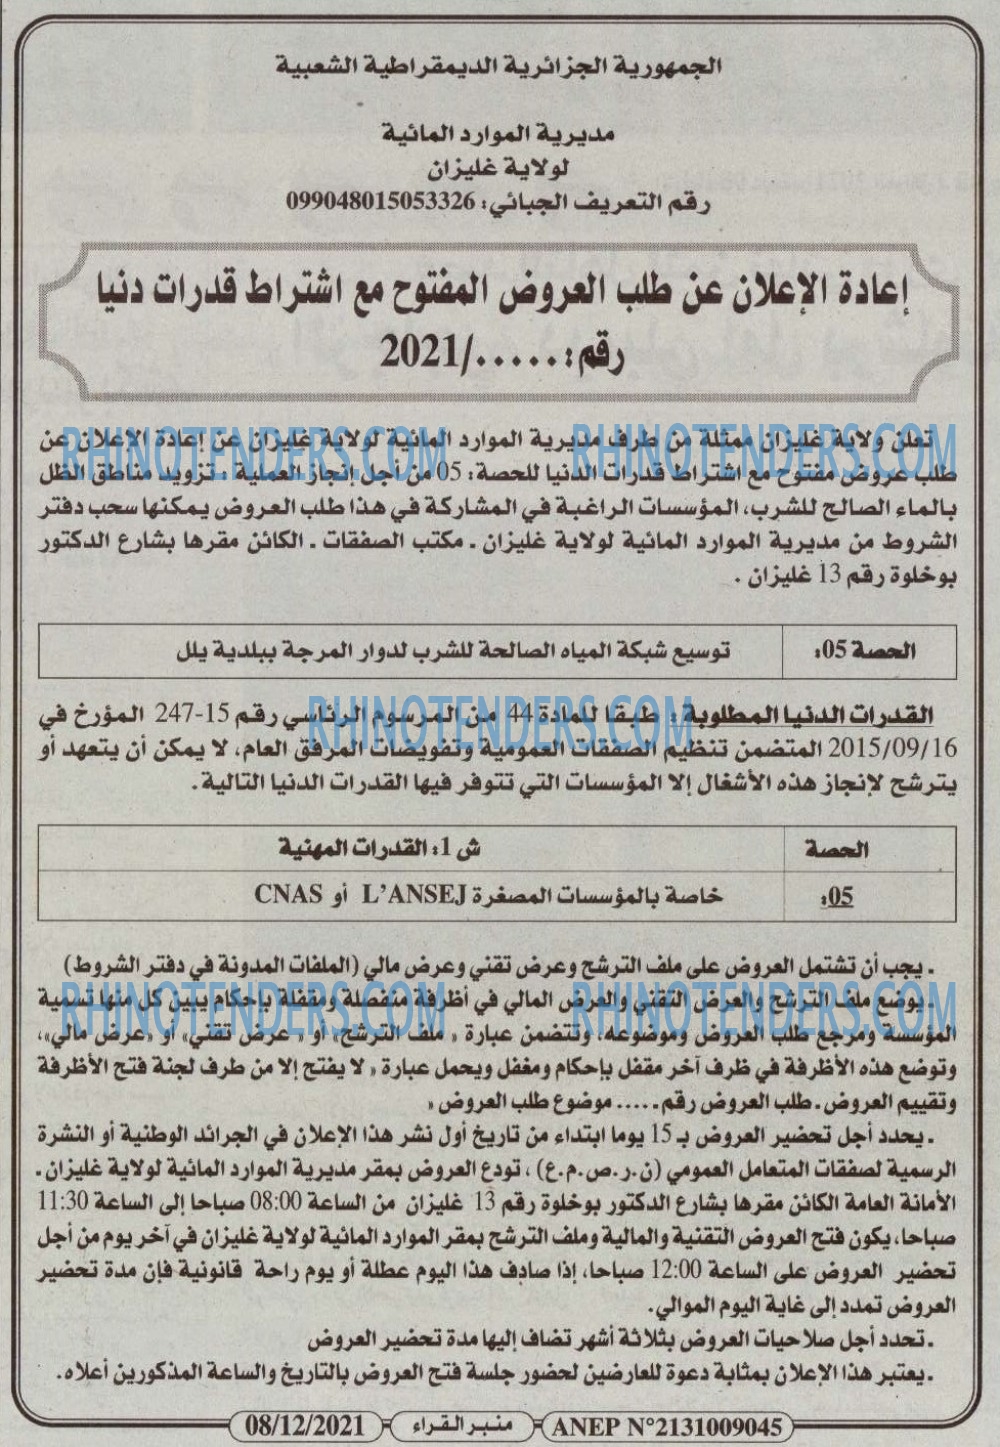 الجمهورية الجزائرية الديمقراطية الشعبية
مديرية الموارد المائية
لولاية غليزان
رقم التعريف الجبائي: 099048015053326
إعادة الإعلان عن طلب العروض المفتوح مع اشتراط قدرات دنيا
رقم: ...../2021
تعلن ولاية غليزان ممثلة من طرف مديرية الموارد المائية لولاية غليزان عن إعادة الإعلان عن
طلب عروض مفتوح مع اشتراط قدرات الدنيا للحصة: 05 من أجل إنجاز العملية ـ تزويد مناطق الظل
بالماء الصالح للشرب، المؤسسات الراغبة في المشاركة في هذا طلب العروض يمكنها سحب دفتر
الشروط من مديرية الموارد المائية لولاية غليزان ـ مكتب الصفقات ـ الكائن مقرها بشارع الدكتور
بوخلوة رقم 13 غليزان .
الحصة 05: توسيع شبكة المياه الصالحة للشرب لدوار المرجة ببلدية يلل
القدرات الدنيا المطلوبة: طبقا للمادة 44 من المرسوم الرئاسي رقم 15-247 المؤرخ في
2015/09/16 المتضمن تنظيم الصفقات العمومية وتفويضات المرفق العام، لا يمكن أن يتعهد أو
يترشح لإنجاز هذه الأشغال إلا المؤسسات التي تتوفر فيها القدرات الدنيا التالية.
الحصة ش 1: القدرات المهنية
05: خاصة بالمؤسسات المصغرة L'ANSEJ أو CNAS
ـ يجب أن تشتمل العروض على ملف الترشح وعرض تقني وعرض مالي (الملفات المدونة في دفتر الشروط)
ـ يوضع ملف الترشح والعرض التقني والعرض المالي في أظرفة منفصلة ومقفلة بإحكام يبين كل منها تسمية
المؤسسة ومرجع طلب العروض وموضوعه، وتتضمن عبارة « ملف الترشح» أو « عرض تقني» أو «عرض مالي»،
وتوضع هذه الأظرفة في ظرف آخر مقفل بإحكام ومغفل ويحمل عبارة « لا يفتح إلا من طرف لجنة فتح الأظرفة
وتقييم العروض ـ طلب العروض رقم..... موضوع طلب العروض «
ـ يحدد أجل تحضير العروض بـ 15 يوما ابتداء من تاريخ أول نشر هذا الإعلان في الجرائد الوطنية أو النشرة
الرسمية لصفقات المتعامل العمومي (ن.ر.ص.م.ع) ، تودع العروض بمقر مديرية الموارد المائية لولاية غليزان ـ
الأمانة العامة الكائن مقرها بشارع الدكتور بوخلوة رقم 13 غليزان من الساعة 08:00 صباحا إلى الساعة 11:30
صباحا، يكون فتح العروض التقنية والمالية وملف الترشح بمقر الموارد المائية لولاية غليزان في آخر يوم من أجل
تحضير العروض على الساعة 12:00 صباحا، إذا صادف هذا اليوم عطلة أو يوم راحة قانونية فإن مدة تحضير
العروض تمدد إلى غاية اليوم الموالي.
ـ تحدد أجل صلاحيات العروض بثلاثة أشهر تضاف إليها مدة تحضير العروض
ـ يعتبر هذا الإعلان بمثابة دعوة للعارضين لحضور جلسة فتح العروض بالتاريخ والساعة المذكورين أعلاه.
08/12/2021 منبر القراء ANEP N°2131009045
RHINOTENDERS.COM RHINOTENDERS.COM
RHINOTENDERS.COM
RHINOTENDERS.COM RHINOTENDERS.COM